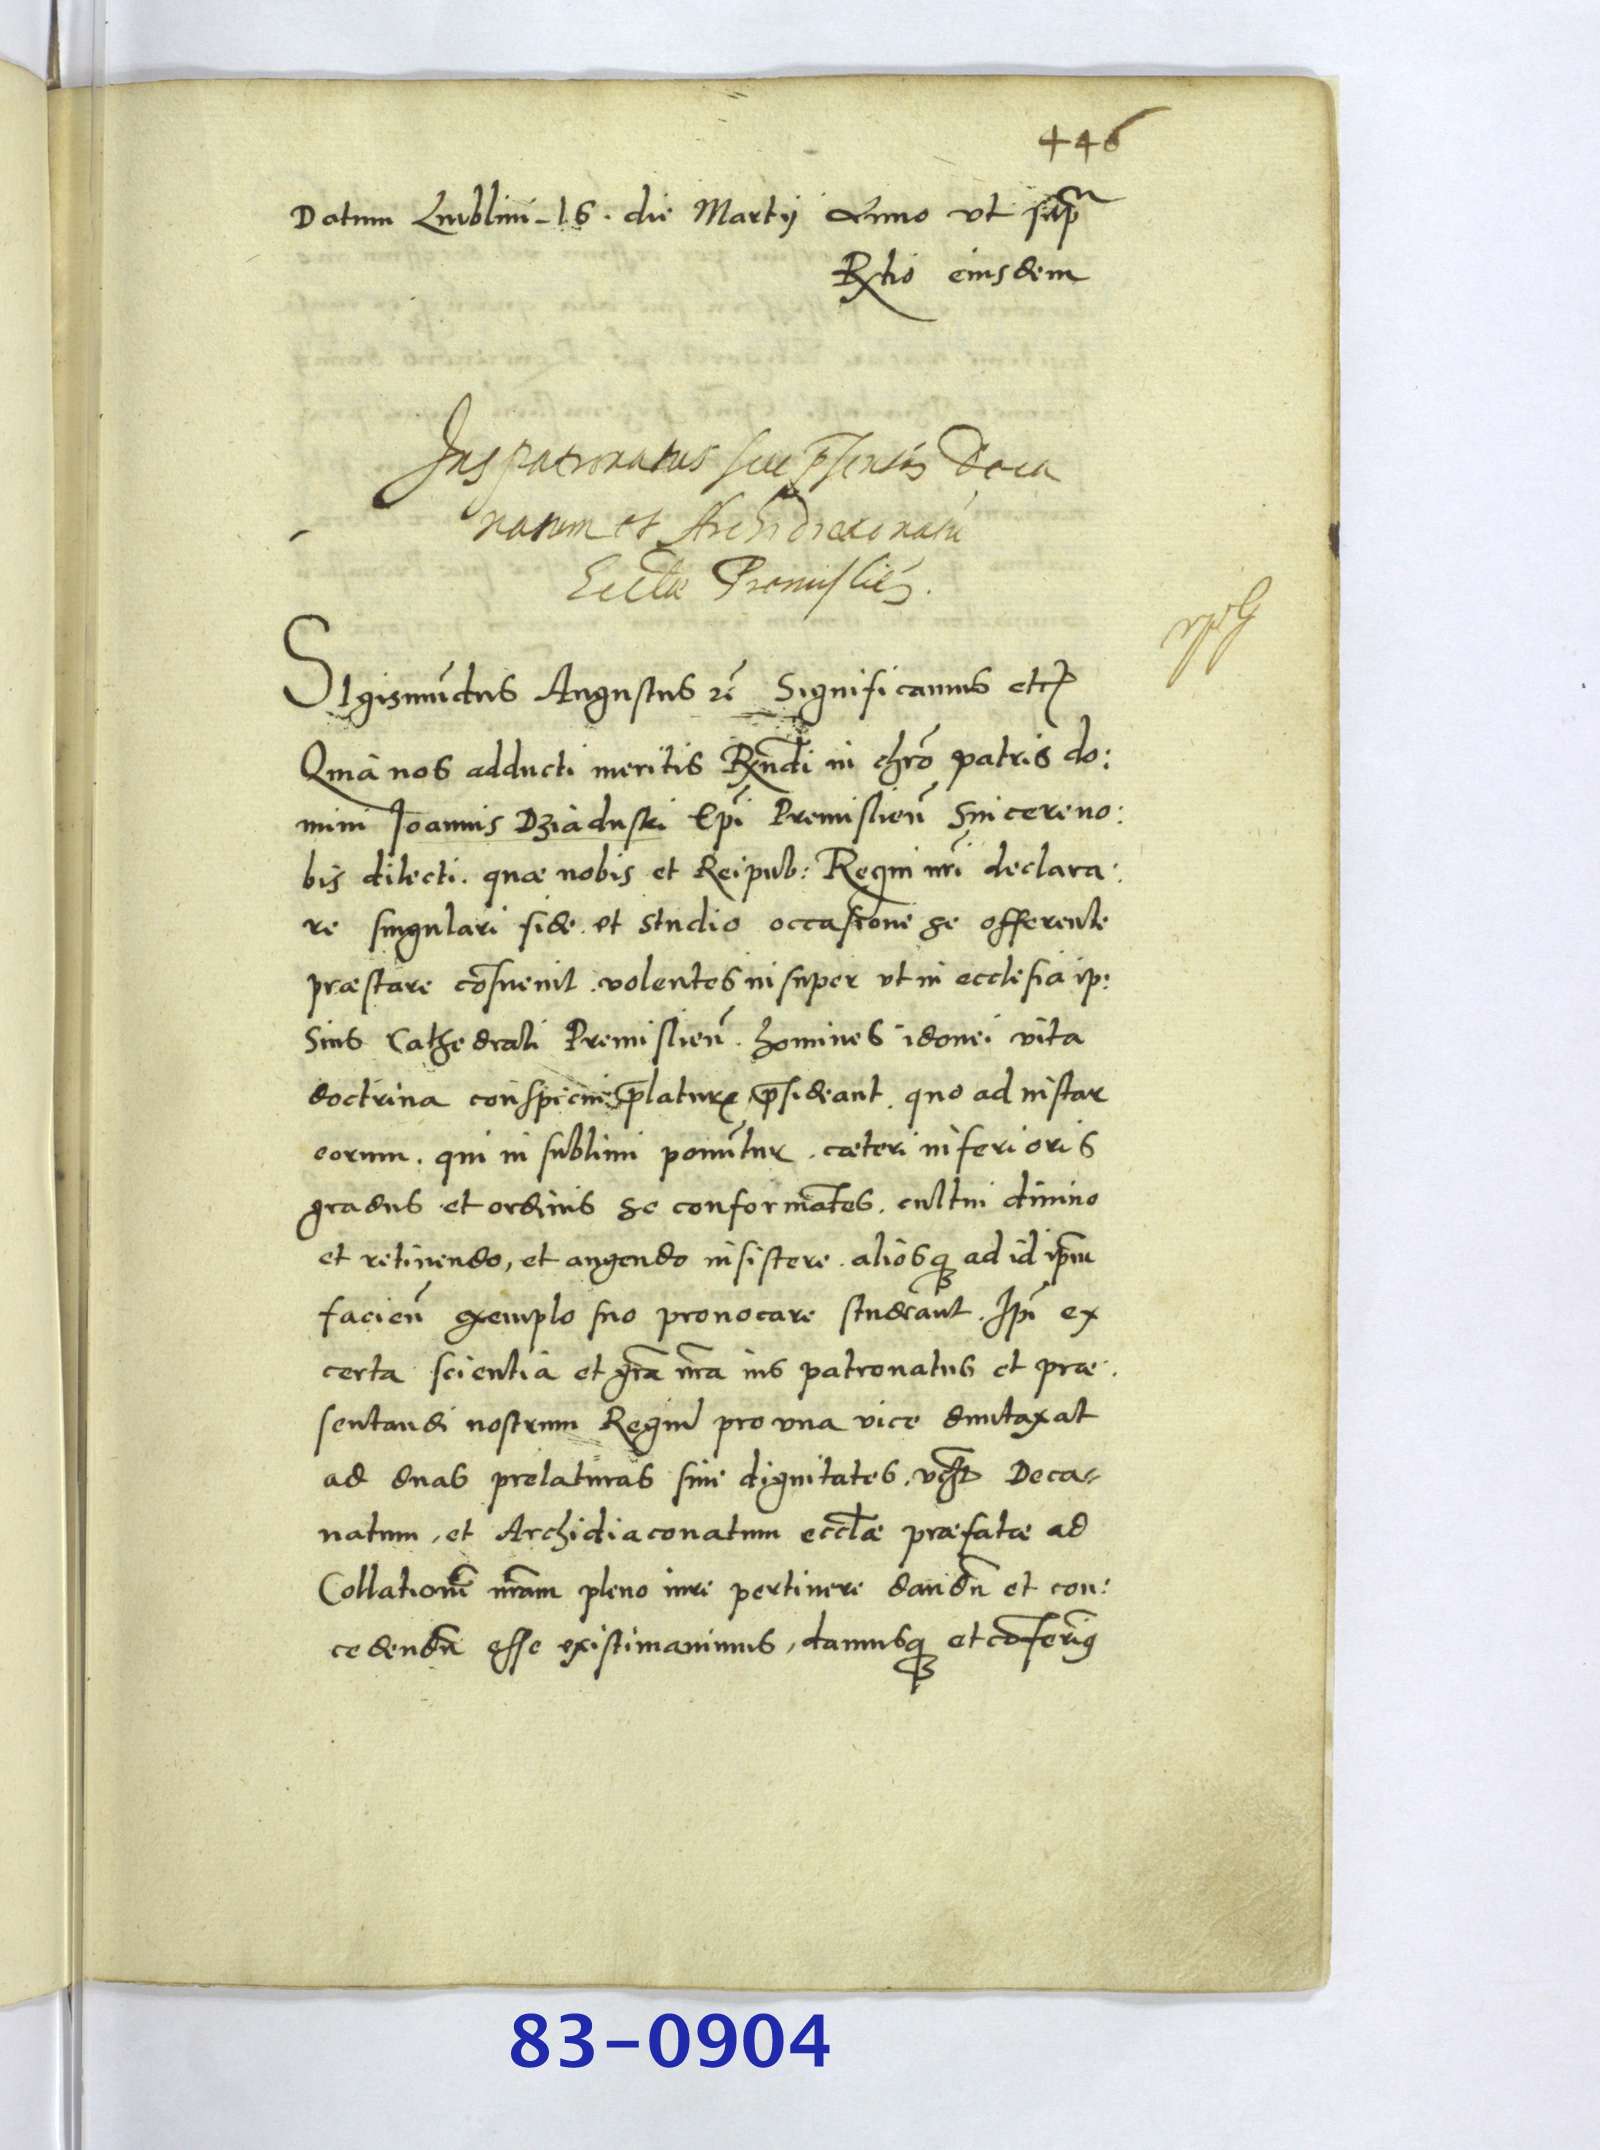 446
Datum Lublini 16. die Martij Anno vt sup̃
Rxtio eiusdem
Jus patronatus seu p̃senten Deca
natum et Archidiaconatũ
Eccl̃ae Premislien̄.
SIgismũdus Augustus zc̃ Significamus etc̃
Quia nos adducti meritis Rxñdi in chrõ patris do:
mini Joannis Dziaduski Ep̃i Premislien̄ Sincere no:
bis dilecti. quæ nobis et Reipub: Regni nr̃i declara:
re singulari fide. et studio occasione se offerente
præstare cõsueuit. volentes insuper vt in ecclesia ip:
sius Cathedrali Premislien̄. homines idonei vita
doctrina conspicui, p̃laturæ p̃sideant. quo ad instar
eorum. qui in sublimi ponũtur. cæteri inferioris
gradus et ordinis se conformãtes. cultui diuino
et retinendo, et augendo insistere. aliosq; ad id ip̃m
facien̄ exemplo suo prouocare studeant. Jp̃i ex
certa scientia et gr̃a nr̃a ius patronatus et præ:
sentandi nostrum Regiũ pro vna vice duntaxat
ad duas prelaturas siue dignitates, Deca-
natum, et Archidiaconatum eccl̃æ præfatæ ad
Collationẽ nr̃am pleno iure pertinere dandũ et con:
cedendũ esse existimauimus, damusq; et cõferimus
83-0904